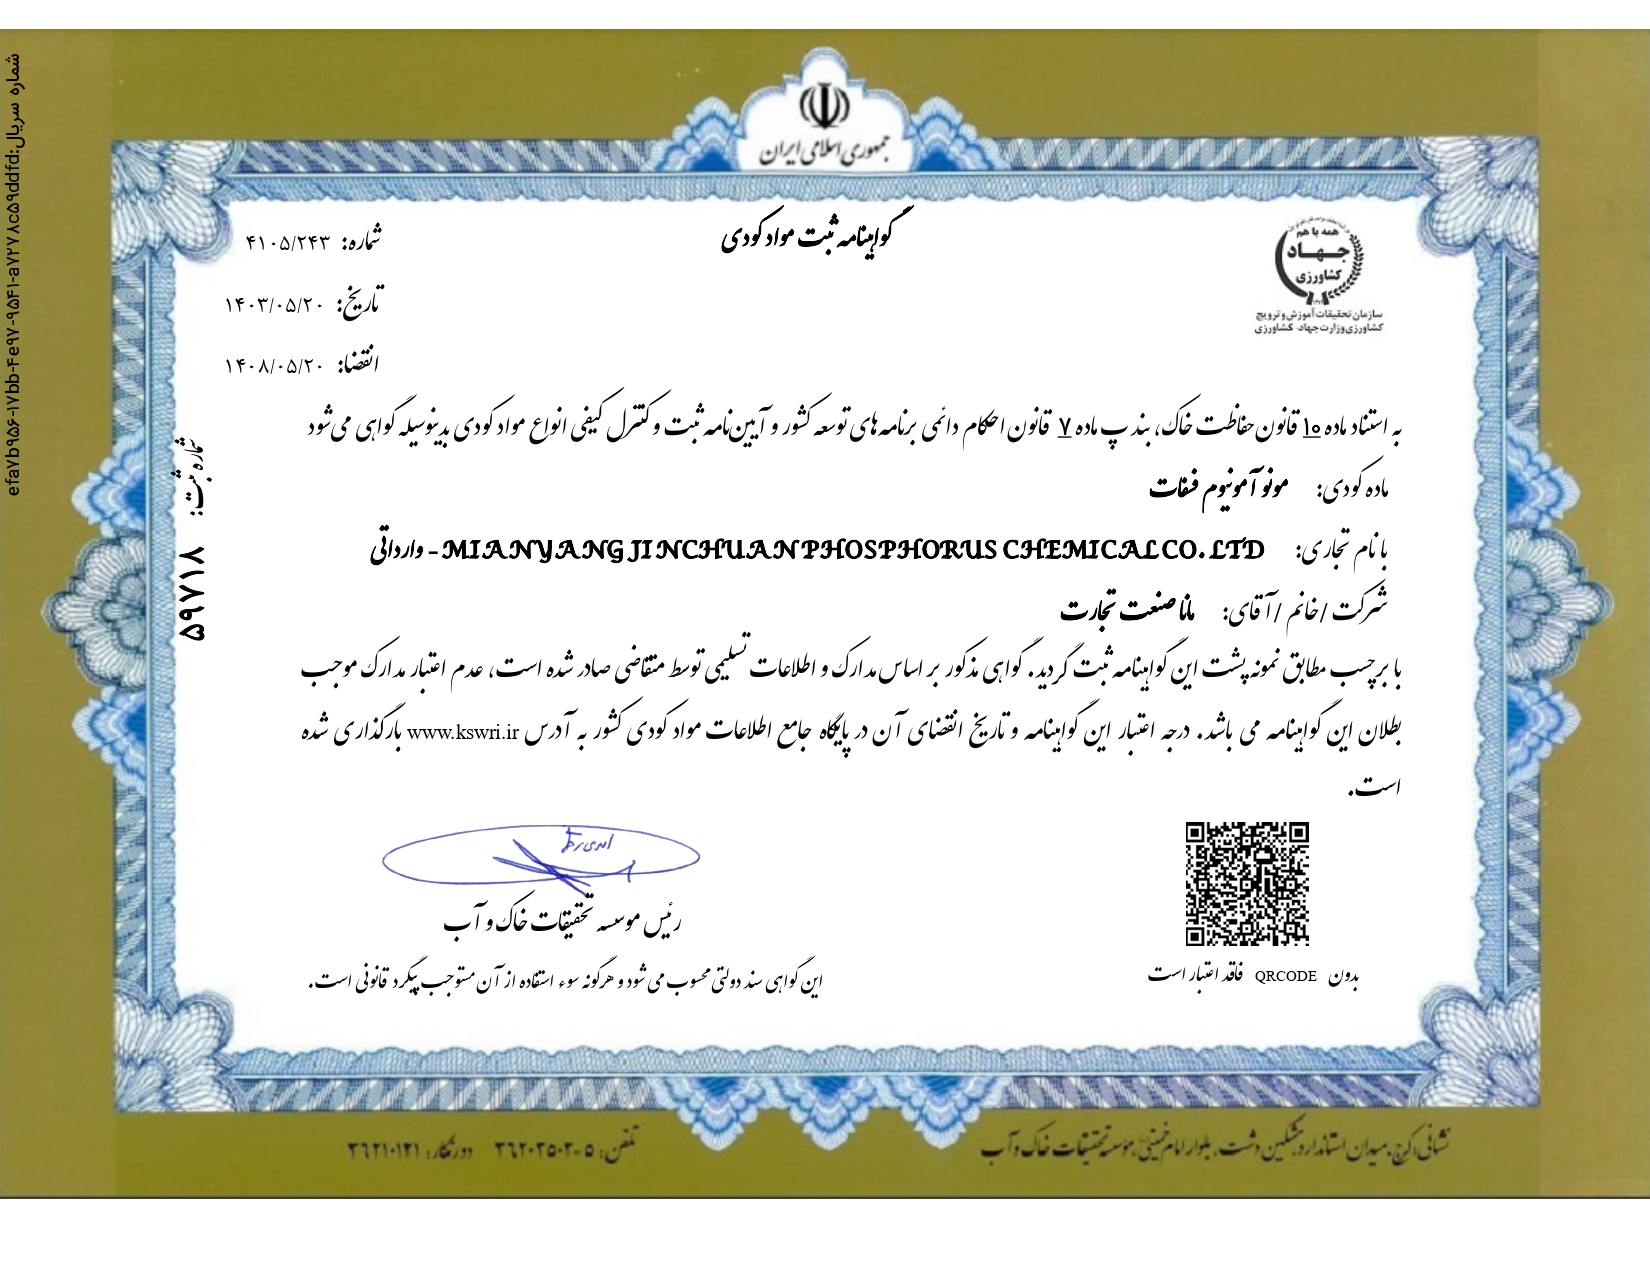 جمهوری اسلامی ایران
همه با هم
جهاد
کشاورزی
سازمان تحقیقات آموزش و ترویج
کشاورزی وزارت جهاد کشاورزی
گواهینامه ثبت مواد کودی
شماره: ۴۱۰۵/۲۴۳
تاریخ: ۱۴۰۳/۰۵/۲۰
انقضا: ۱۴۰۸/۰۵/۲۰
به استناد ماده ۱۰ قانون حفاظت خاک، بند پ ماده ۷ قانون احکام دائمی برنامه‌های توسعه کشور و آیین‌نامه ثبت و کنترل کیفی انواع مواد کودی بدینوسیله گواهی می‌شود
ماده کودی: مونو آمونیوم فسفات
با نام تجاری: MIANYANG JINCHUAN PHOSPHORUS CHEMICAL CO. LTD - وارداتی
شرکت / خانم / آقای: مانا صنعت تجارت
با برچسب مطابق نمونه پشت این گواهینامه ثبت گردید. گواهی مذکور بر اساس مدارک و اطلاعات تسلیمی توسط متقاضی صادر شده است، عدم اعتبار مدارک موجب
بطلان این گواهینامه می باشد. درجه اعتبار این گواهینامه و تاریخ انقضای آن در پایگاه جامع اطلاعات مواد کودی کشور به آدرس www.kswri.ir بارگذاری شده
است.
رئیس موسسه تحقیقات خاک و آب
بدون QRCODE فاقد اعتبار است
این گواهی سند دولتی محسوب می شود و هرگونه سوء استفاده از آن مستوجب پیگرد قانونی است.
نشانی: کرج، میدان استاندارد، مشکین دشت، بلوار امام خمینی، مؤسسه تحقیقات خاک و آب
تلفن: ۵-۳۶۲۰۳۵۰۲ دورنگار: ۳۶۲۱۰۱۲۱
شماره ثبت: ۵۹۷۱۸
شماره سریال: efa۷b۹۵۶-۱۷bb-۴e۹۷-۹۵۴۱-a۷۲۷۸c۵۹ddfd